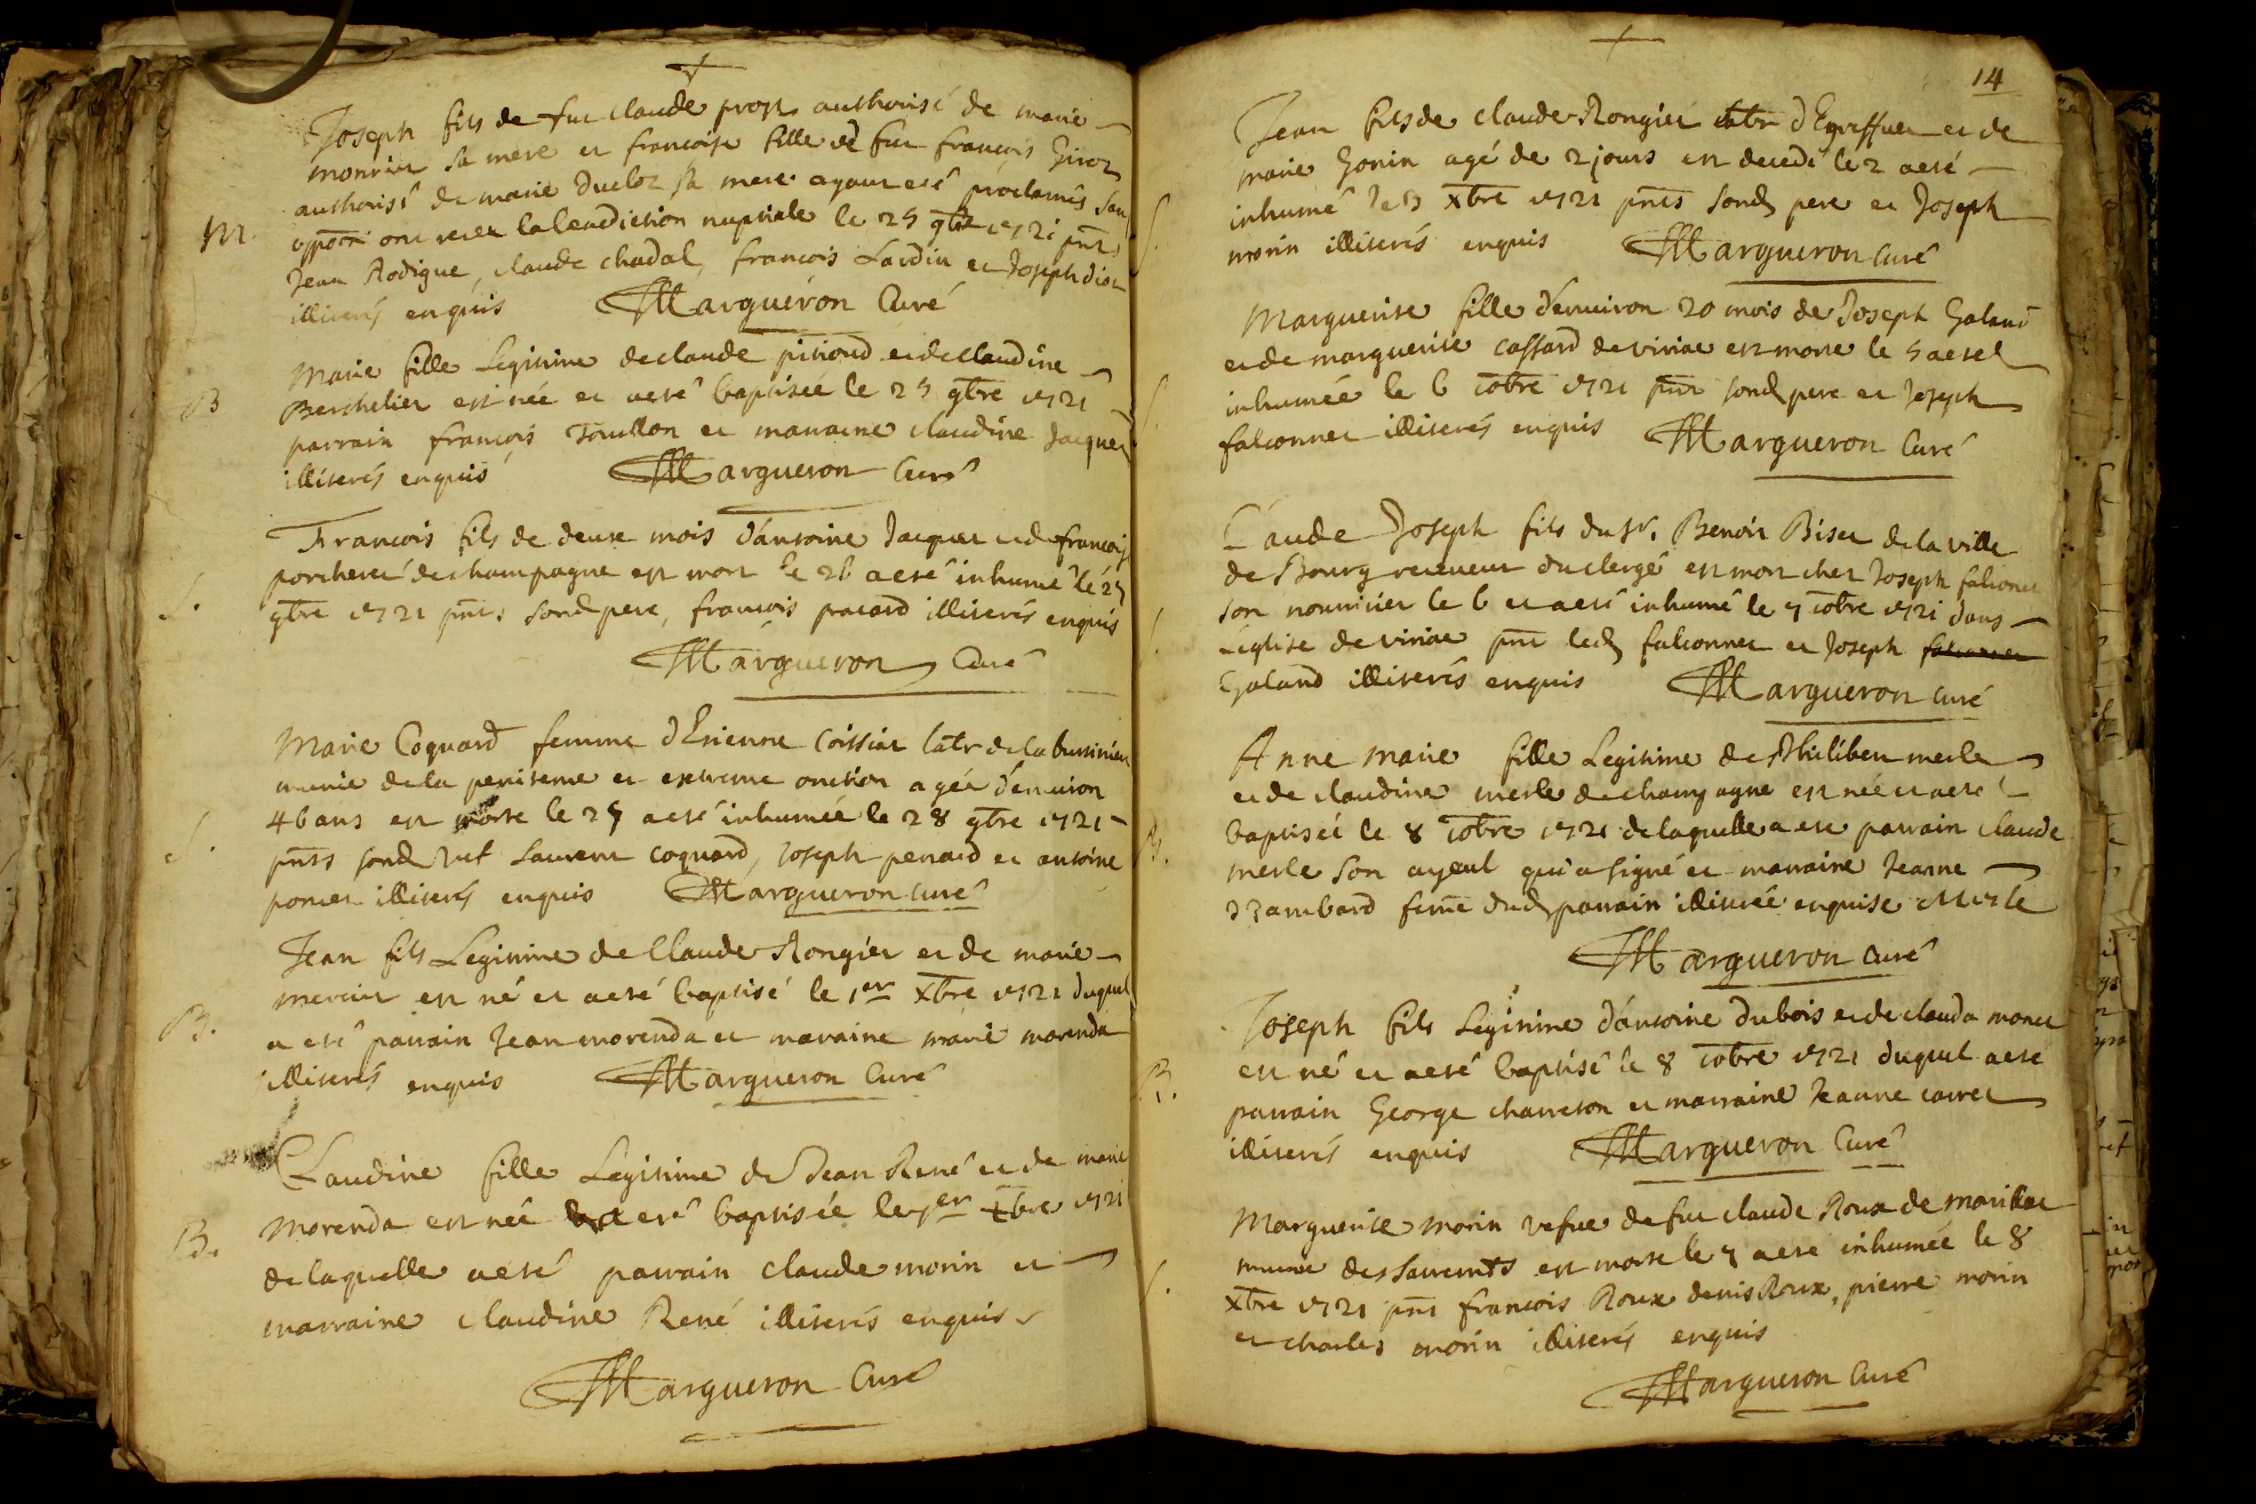 Joseph fils de feu claude prost authorisé de marie
monnier sa mere et francoise fille de feu francois Giroz
authorisé de marie Ducloz sa mere ayant esté proclamés san
oppõõn ont receu la benediction nuptiale le 25 9bre 1721 pñts
M. Jean Rodigue, claude chadal, francois Lardin et Joseph
illiterés enquis Margueron Curé
Marie fille Legitime de claude pitioud et de claudine
B Berthelier est née et a esté baptisée le 25 9bre 1721
parrain francois Touillon et marraine claudine Jacquet
illiterés enquis Margueron Curé
Francois fils de deux mois d'antoine Jacquet et de francoise
porcheret de champagne est mort le 26 a esté inhumé le 27
S. 9bre 1721 pñts sond pere, francois pracard illiterés enquis
Margueron Curé
Marie Coquard femme d'Etienne Coissiat labr de la
munie de la penitence et extreme onction agée d'environ
46 ans est morte le 27 a esté inhumée le 28 9bre 1721
S. pñts sond Laurent Coquard, Joseph penard et antoine
poncet illiterés enquis Margueron Curé
Jean fils Legitime de Claude Rongier et de marie
mercier est né et a esté baptisé le 1er Xbre 1721 duquel
B. a esté parrain Jean morenda et maraine marie morenda
illiterés enquis Margueron Curé
Claudine fille Legitime de Jean René et de marie
B. Morenda est née et a esté baptisée le 1er Xbre 1721
de laquelle a esté parrain claude morin et
marraine claudine René illiterés enquis
Margueron Curé
14
Jean fils de claude Rongier labr d'Egreffuel et de
marie Gonin agé de 2 jours est decedé le 2 a esté
S. inhumé le 3 Xbre 1721 pñts sond pere et Joseph
morin illiterés enquis Margueron Curé
Marguerite fille d'environ 20 mois de Joseph Galand
et de marguerite cassard de viriac est morte le 5 a esté
S. inhumée le 6 Xobre 1721 pñt sond pere et Joseph
falconnet illiterés enquis Margueron Curé
Claude Joseph fils du Sr. Benoit Biset de la ville
de Bourg receveur du clergé est mort chez Joseph falconet
son nourricier le 6 et a esté inhumé le 7 Xobre 1721 dans
S. L'eglise de viriac pñt led falconnet et Joseph falconnet
Galand illiterés enquis Margueron Curé
Anne marie fille Legitime de Philibert merle
et de claudine merle de champagne est née et a esté
B. baptisée le 8 Xobre 1721 de laquelle a esté parrain claude
merle son ayeul qui a signé et marraine Jeanne
Bzambard femẽ dud parrain illiterée enquise Merle
Margueron Curé
Joseph fils Legitime d'antoine dubois et de clauda monet
est né et a esté baptisé le 8 Xobre 1721 duquel a esté
B. parrain George charreton et marraine Jeanne carret
illiterés enquis Margueron Curé
Marguerite morin vefue de feu claude Roux de marillac
munie des sacremts est morte le 7 a esté inhumée le 8
S. Xbre 1721 pñts francois Roux denis Roux, pierre morin
et charles morin illiterés enquis
Margueron Curé